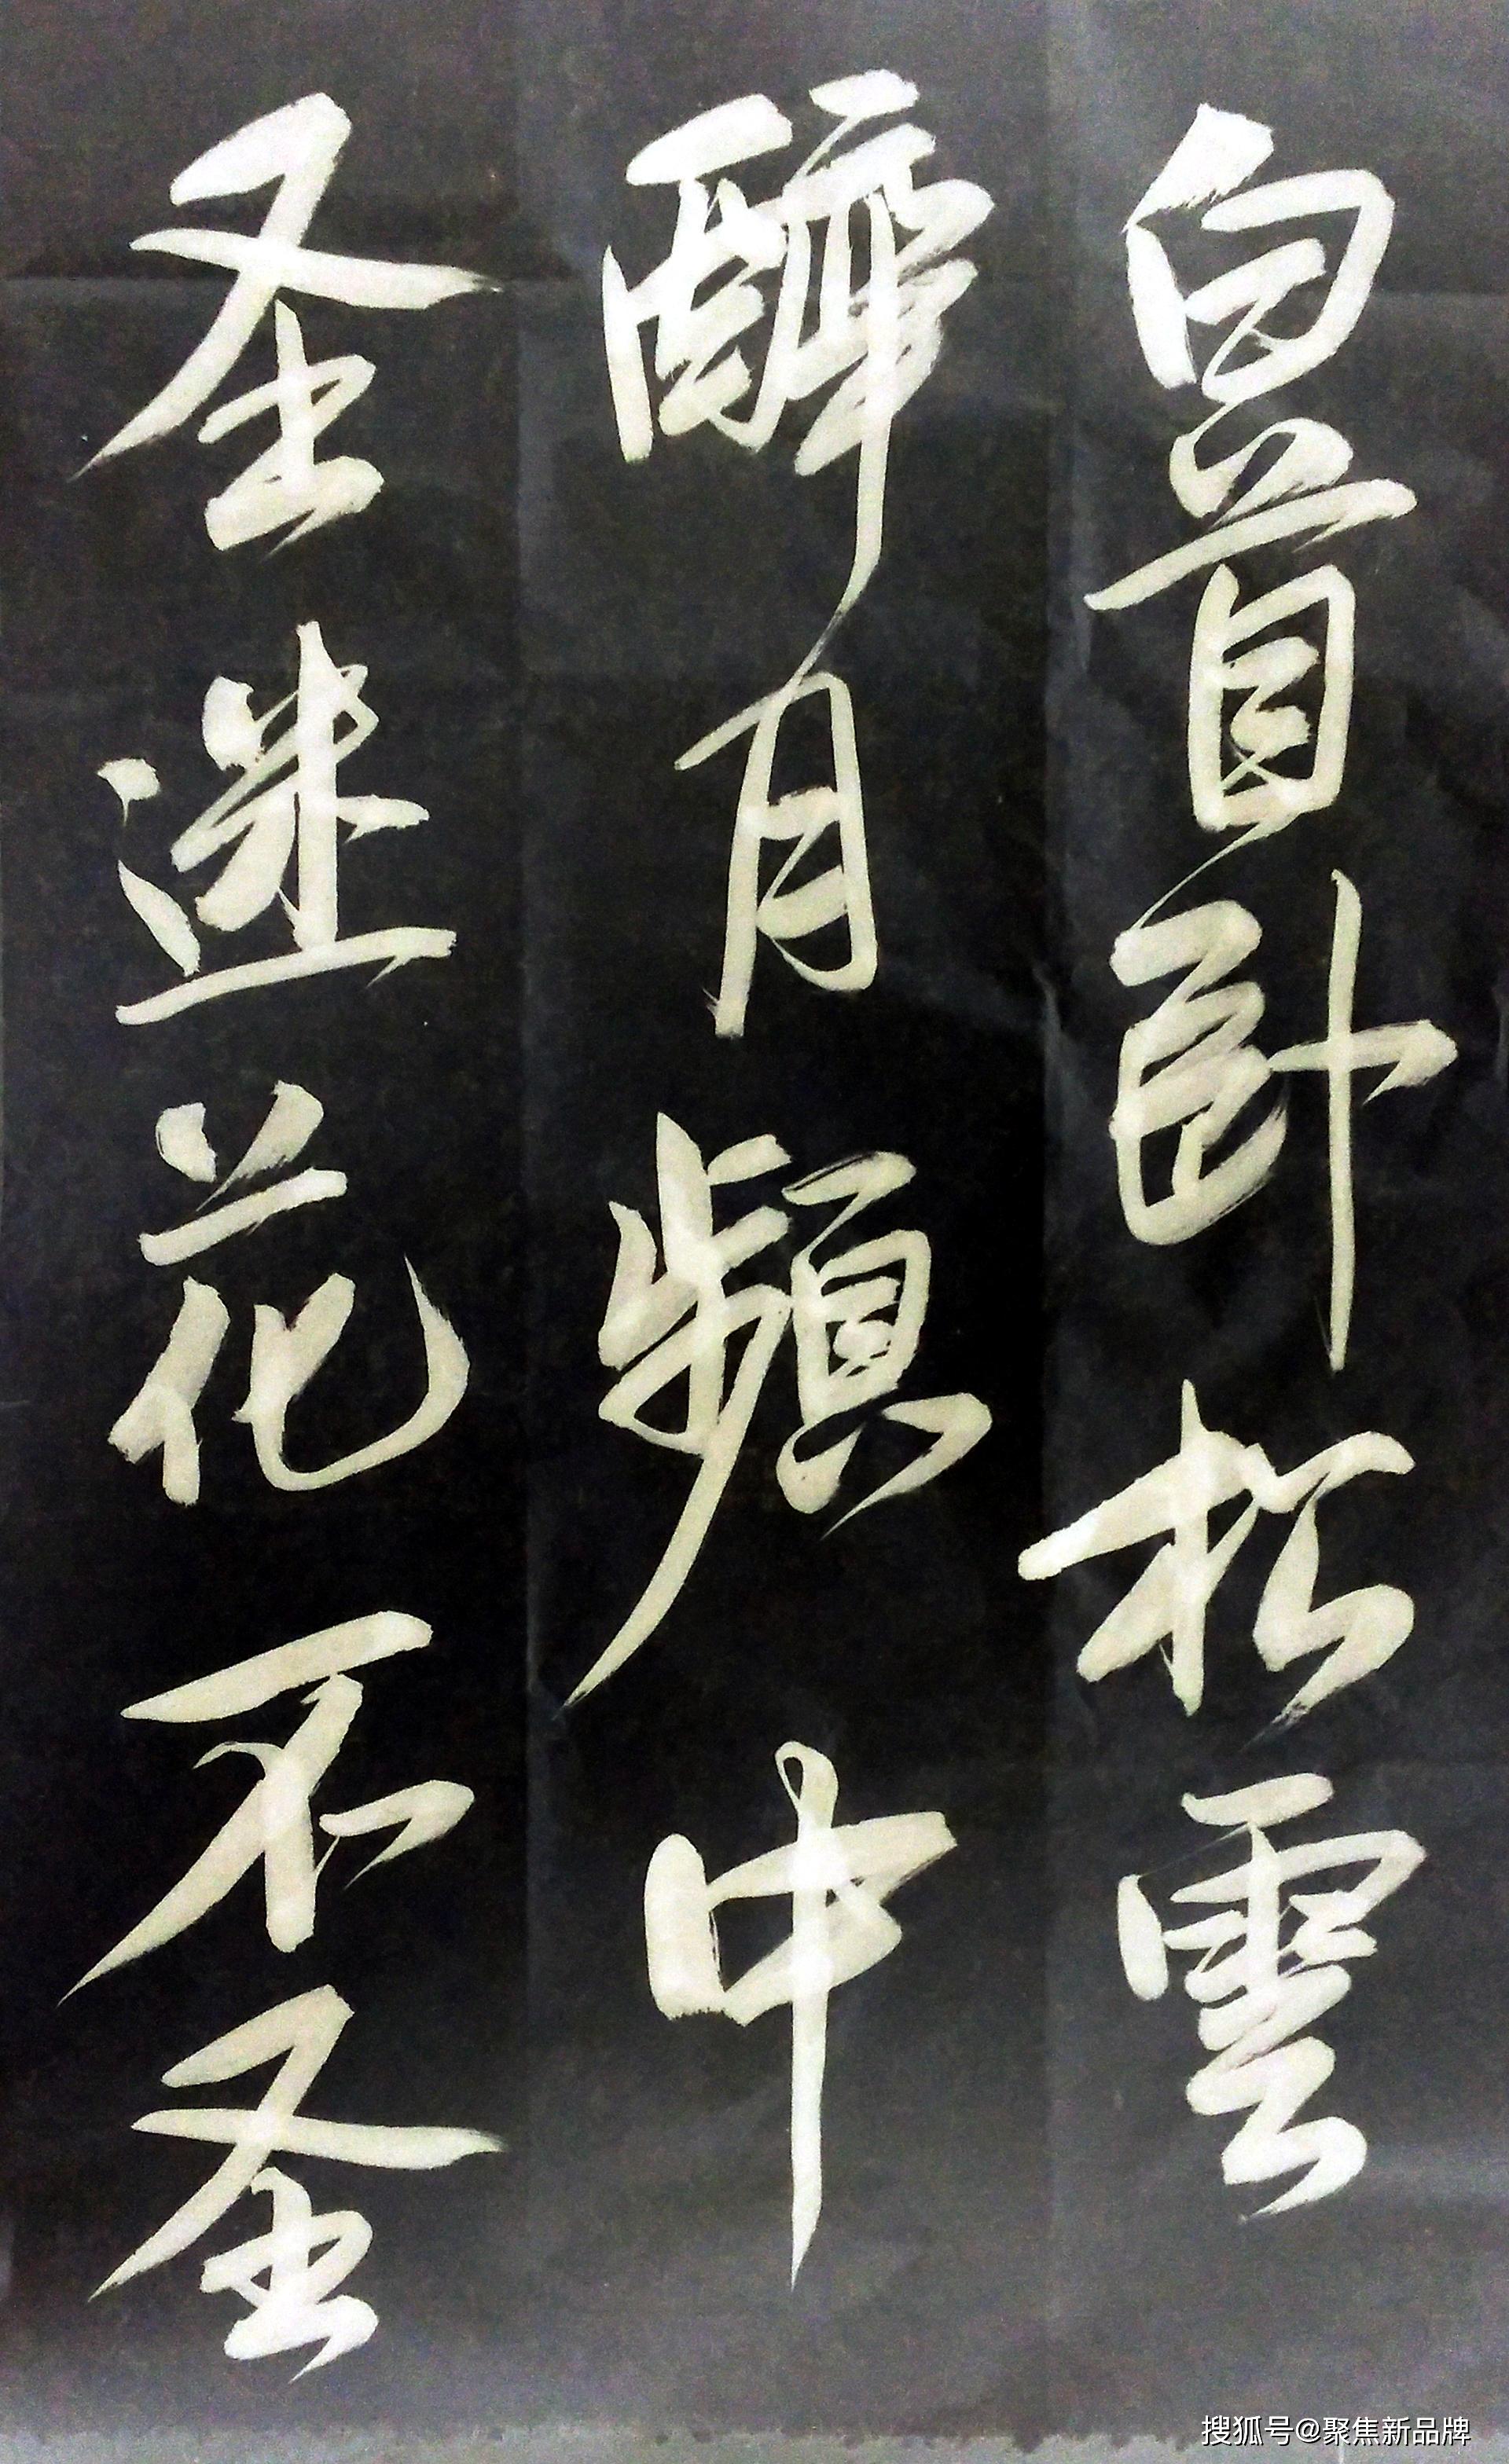 白首卧松雲
醉月頻中
圣迷花不圣
搜狐号@聚焦新品牌